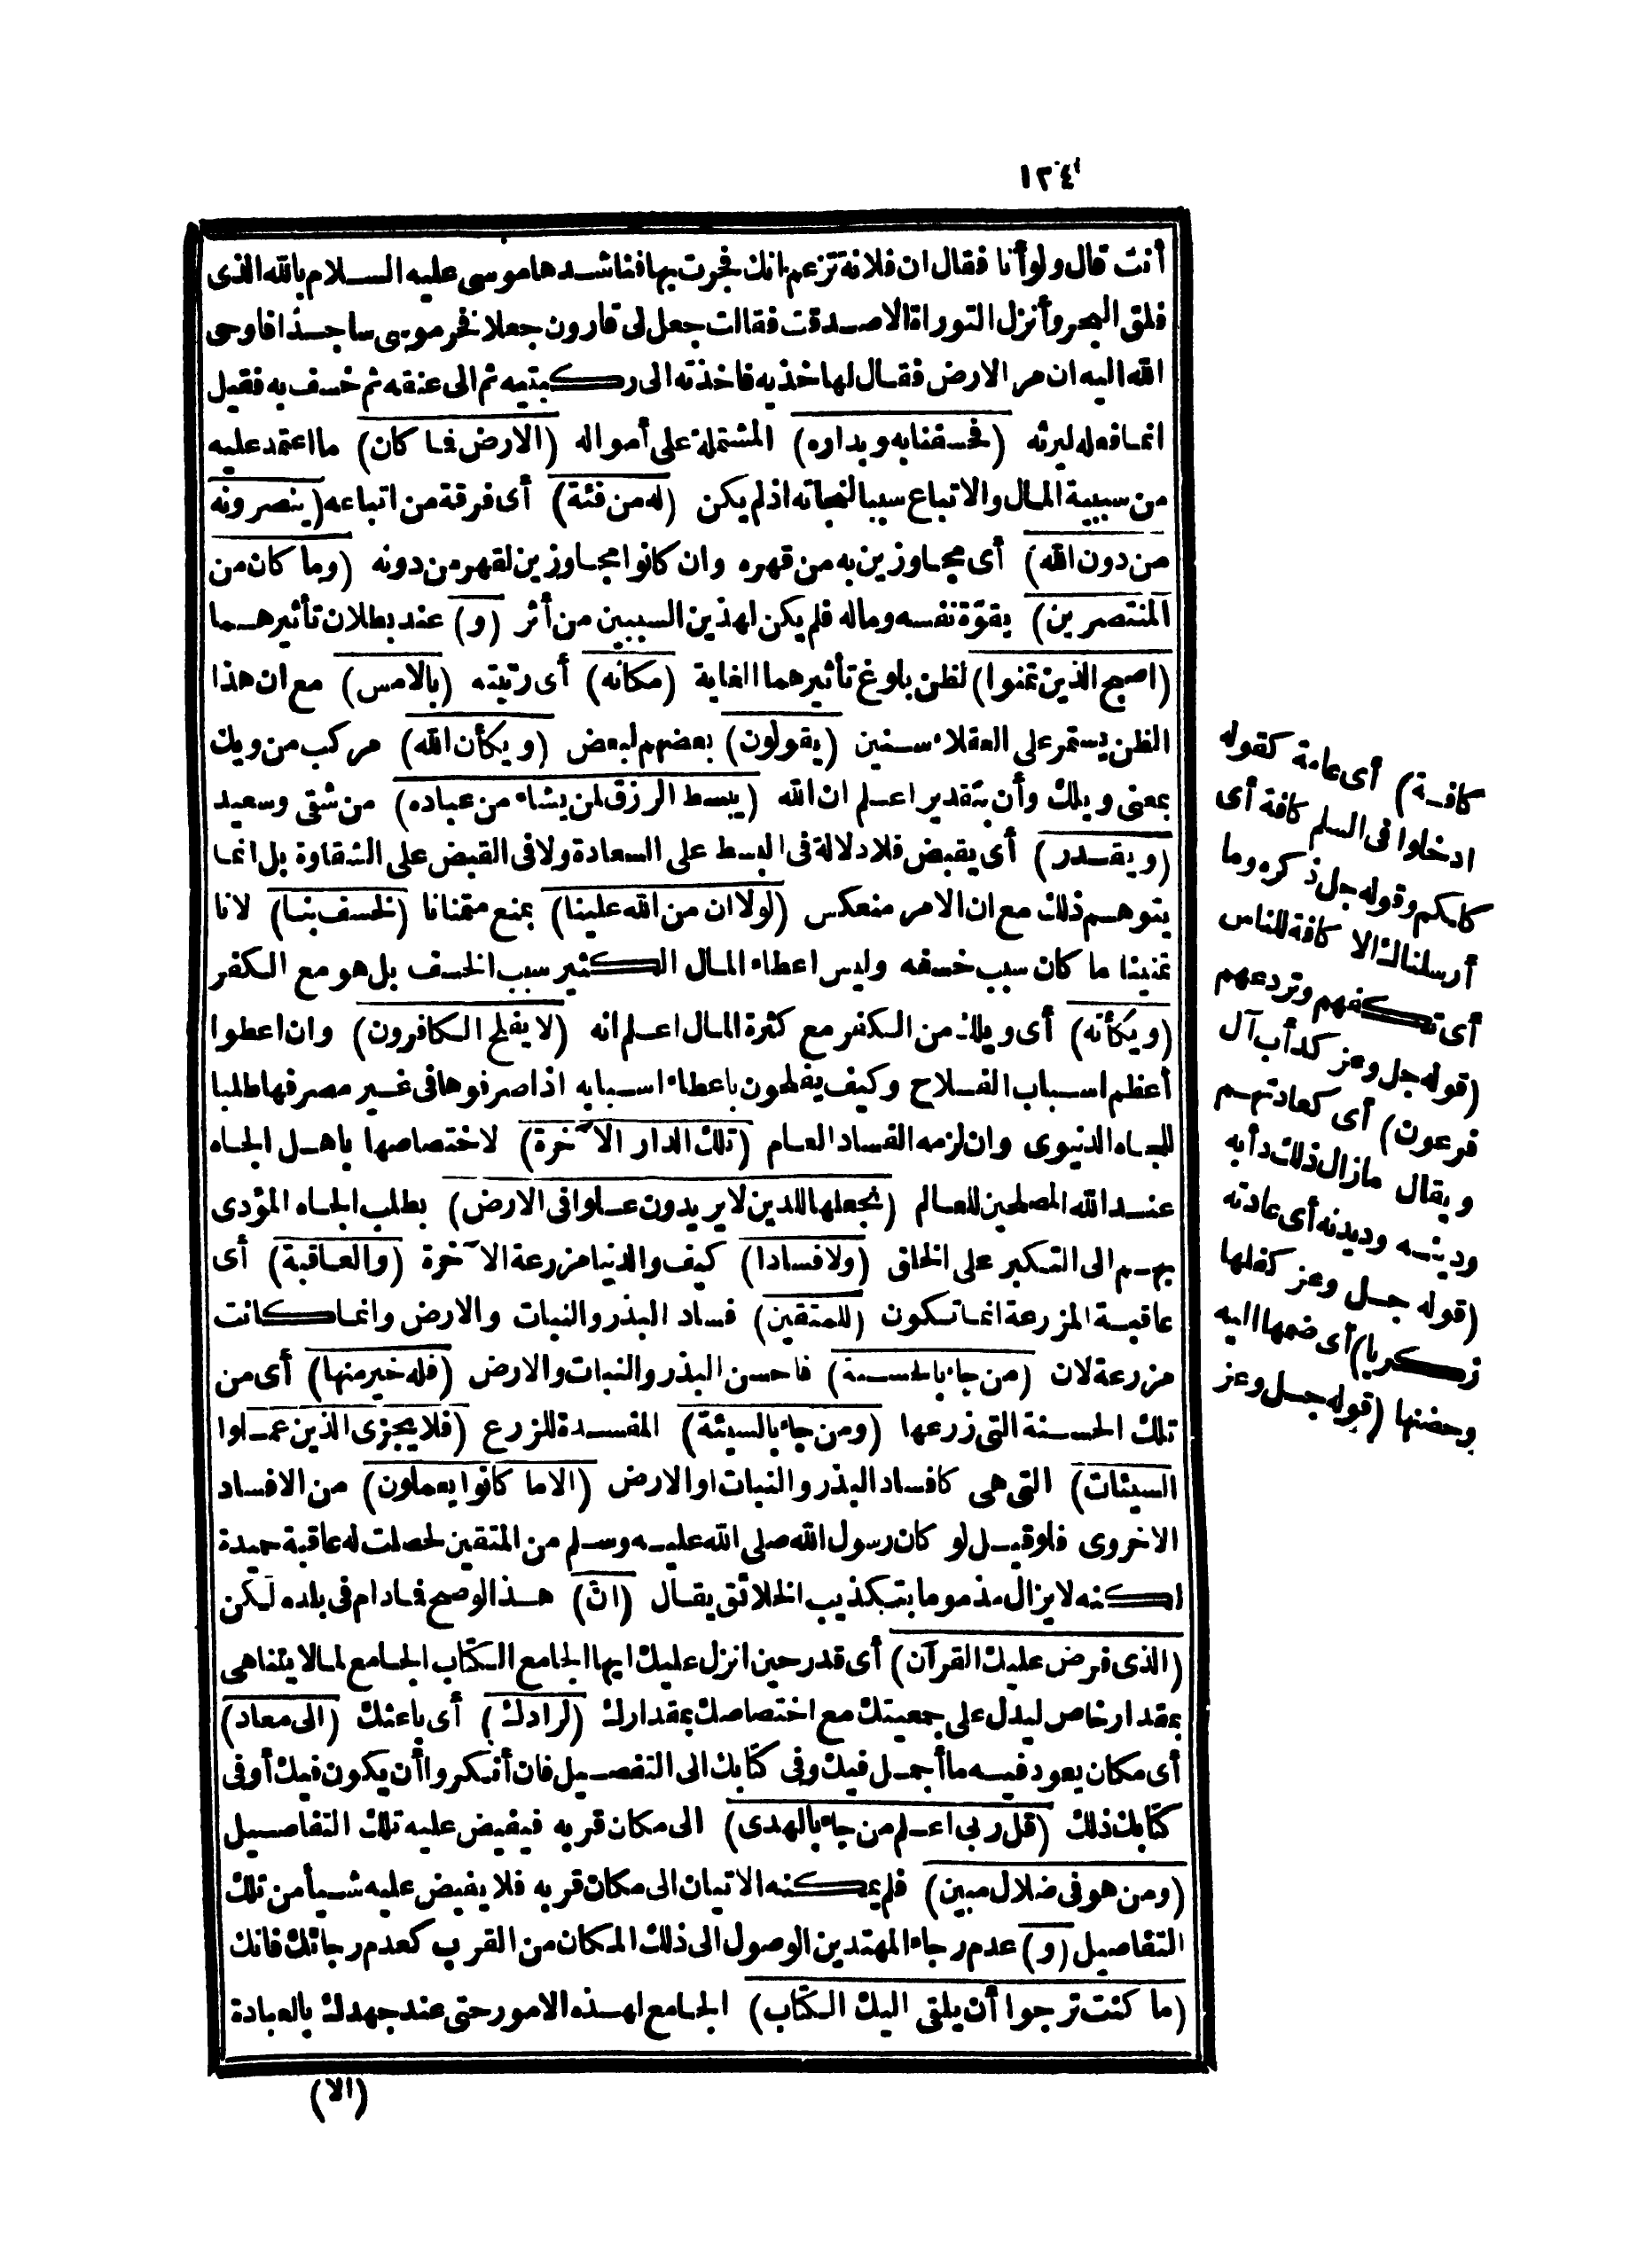 ١٢٤
أنت قال ولو أنا فقال ان فلانة تزعم انك فجرت بها فناشدها موسى عليه السلام بالله الذى
فلق البحر وأنزل التوراة الا صدقت فقالت جعل لى قارون جعلا فخر موسى ساجدا فاوحى
الله اليه ان مر الارض فقال لها خذيه فاخذته الى ركبتيه ثم الى عنقه ثم خسف به فقيل
انما فعله ليرثه (فخسفنا به وبداره) المشتملة على أمواله (الارض فما كان) ما اعتمد عليه
من سببية المال والاتباع سببا لنجاته اذ لم يكن (له من فئة) أى فرقة من اتباعه (ينصرونه
من دون الله) أى مجاوزين به من قهره وان كانوا مجاوزين لقهر من دونه (وما كان من
المنتصرين) بقوّة نفسه وماله فلم يكن لهذين السببين من أثر (و) عند بطلان تأثيرهما
(اصبح الذين تمنوا) لظن بلوغ تأثيرهما الغاية (مكانه) أى رتبته (بالامس) مع ان هذا
الظن يستمر على العقلاء سنين (يقولون) بعضهم لبعض (ويكأن الله) مركب من ويك
بمعنى ويلك وأن بتقدير اعلم ان الله (يبسط الرزق لمن يشاء من عباده) من شقى وسعيد
(ويقدر) أى يقبض فلا دلالة فى البسط على السعادة ولا فى القبض على الشقاوة بل انما
يتوهم ذلك مع ان الامر منعكس (لولا ان من الله علينا) بمنع متمنانا (لخسف بنا) لانا
تمنينا ما كان سبب خسفه وليس اعطاء المال الكثير سبب الخسف بل هو مع الكفر
(ويكأنه) أى ويلك من الكفر مع كثرة المال اعلم انه (لا يفلح الكافرون) وان اعطوا
أعظم اسباب الفلاح وكيف يفلحون باعطاء اسبابه اذا صرفوها فى غير مصرفها طلبا
للجاه الدنيوى وان لزمه الفساد العام (تلك الدار الآخرة) لاختصاصها باهل الجاه
عند الله المصلحين للعالم (نجعلها للذين لا يريدون علوا فى الارض) بطلب الجاه المؤدى
بهم الى التكبر على الخلق (ولا فسادا) كيف والدنيا مزرعة الآخرة (والعاقبة) أى
عاقبة المزرعة انما تكون (للمتقين) فساد البذر والنبات والارض وانما كانت
مزرعة لان (من جاء بالحسنة) فاحسن البذر والنبات والارض (فله خير منها) أى من
تلك الحسنة التى زرعها (ومن جاء بالسيئة) المفسدة للزرع (فلا يجزى الذين عملوا
السيئات) التى هى كافساد البذر والنبات او الارض (الا ما كانوا يعملون) من الافساد
الاخروى فلو قيل لو كان رسول الله صلى الله عليه وسلم من المتقين لحصلت له عاقبة حميدة
لكنه لا يزال مذموما بتكذيب الخلائق يقال (انّ) هذا لو صح فمادام فى بلده لكن
(الذى فرض عليك القرآن) أى قدر حين انزل عليك ايها الجامع الكتاب الجامع لما لا يتناهى
بمقدار خاص ليدل على جمعيتك مع اختصاصك بمقدارك (لرادك) أى باعثك (الى معاد)
أى مكان يعود فيه ما أجمل فيك وفى كتابك الى التفصيل فان أنكروا أن يكون فيك أو فى
كتابك ذلك (قل ربى اعلم من جاء بالهدى) الى مكان قربه فيفيض عليه تلك التفاصيل
(ومن هو فى ضلال مبين) فلم يمكنه الاتيان الى مكان قربه فلا يفيض عليه شيأ من تلك
التفاصيل (و) عدم رجاء المهتدين الوصول الى ذلك المكان من القرب كعدم رجائك فانك
(ما كنت ترجوا أن يلقى اليك الكتاب) الجامع لهذه الامور حتى عند جهدك بالعبادة
(الا)
كافة) أى عامة كقوله
ادخلوا فى السلم كافة أى
كلكم وقوله جل ذكره وما
أرسلناك الا كافة للناس
أى تكفهم وتردعهم
(قوله جل وعز كدأب آل
فرعون) أى كعادتهم
ويقال مازال ذلك دأبه
ودينه وديدنه أى عادته
(قوله جل وعز كفلها
زكريا) أى ضمها اليه
وحضنها (قوله جل وعز